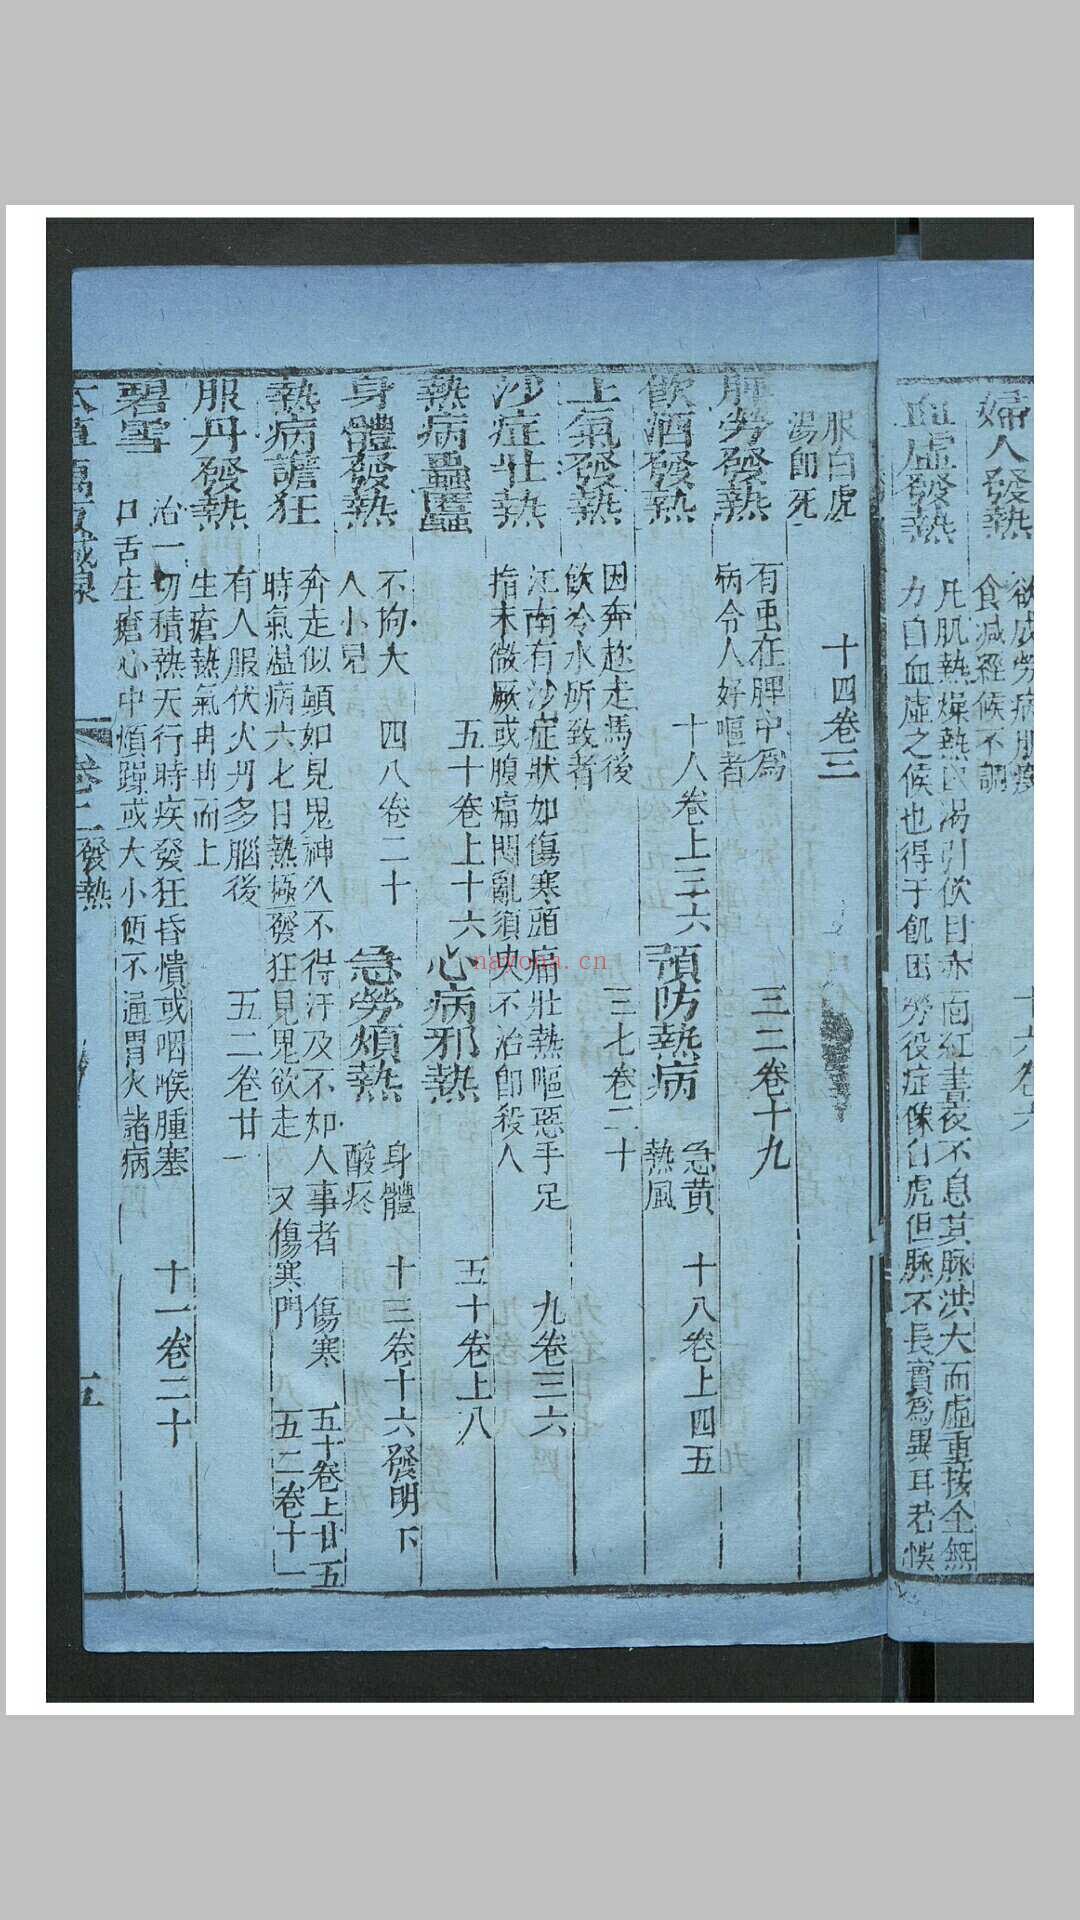 婦人發熱
欲成勞病肌瘦
食減經候不調
血虛發熱
凡肌熱燥熱口渴引飲目赤面紅晝夜不息其脉洪大而虛重按全無
力白血虛之候也得于飢困勞役症像白虎但脉不長實爲異耳若悞
服白虎
湯卽死
十四卷三
脾勞發熱
有虫在脾中爲
病令人好嘔者
三二卷十九
飲酒發熱
十八卷上三六
預防熱病
急黄
熱風
十八卷上四五
上氣發熱
因奔趂走馬後
飲冷水所致者
三七卷二十
沙症壯熱
江南有沙症狀如傷寒頭痛壯熱嘔惡手足
指末微厥或腹痛悶亂須臾不治卽殺人
九卷三六
熱病䘌
五十卷上十六
心病邪熱
五十卷上八
身體發熱
不拘大
人小兒
四八卷二十
急勞煩熱
身體
酸疼
十三卷十六發明下
熱病譫狂
奔走似顛如見鬼神久不得汗及不知人事者
傷寒
五十卷上廿五
時氣温病六七日熱極發狂見鬼欲走
又傷寒門
五二卷十一
服丹發熱
有人服伏火丹多腦後
生瘡熱氣冉冉而上
五二卷廿一
碧雪
治一切積熱天行時疾發狂昏憒或咽喉腫塞
口舌生瘡心中煩躁或大小便不通胃火諸病
十一卷二十
卷二發熱
五
nayona.cn